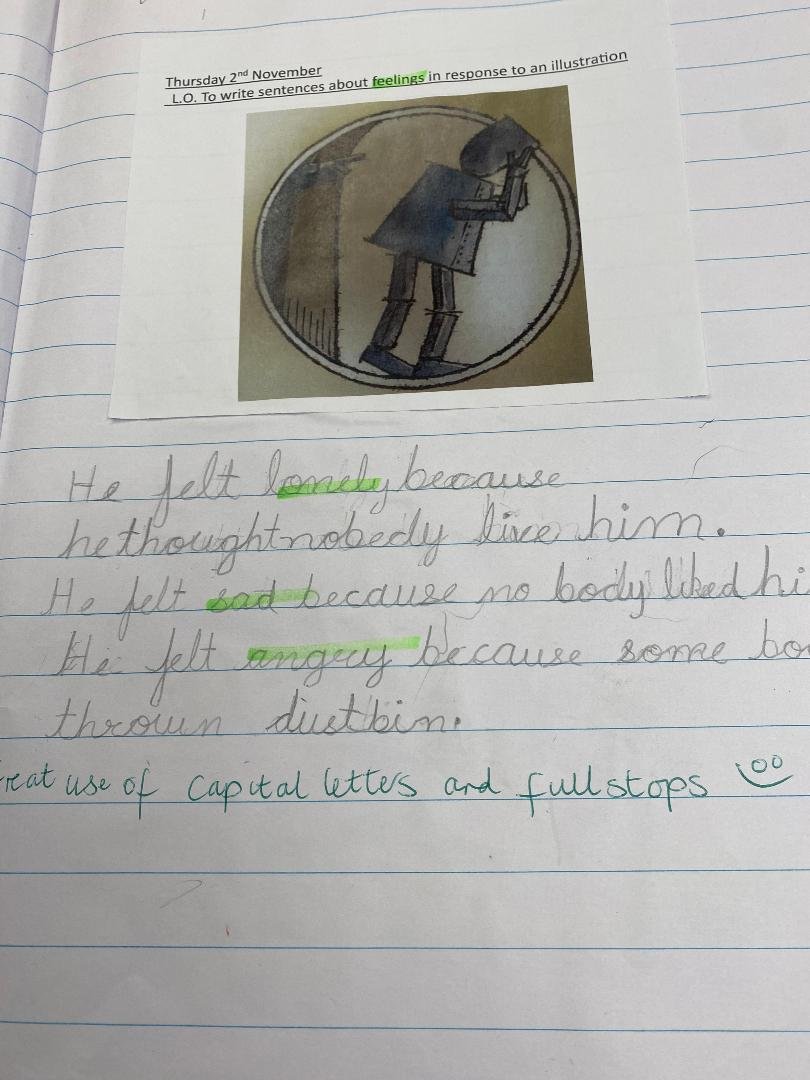 Thursday 2nd November
L.O. To write sentences about feelings in response to an illustration
He felt lonely because
he thought nobedy live him.
He felt sad because no body liked hi
He felt angery because some bo
thrown dustbin.
reat use of capital letters and full stops